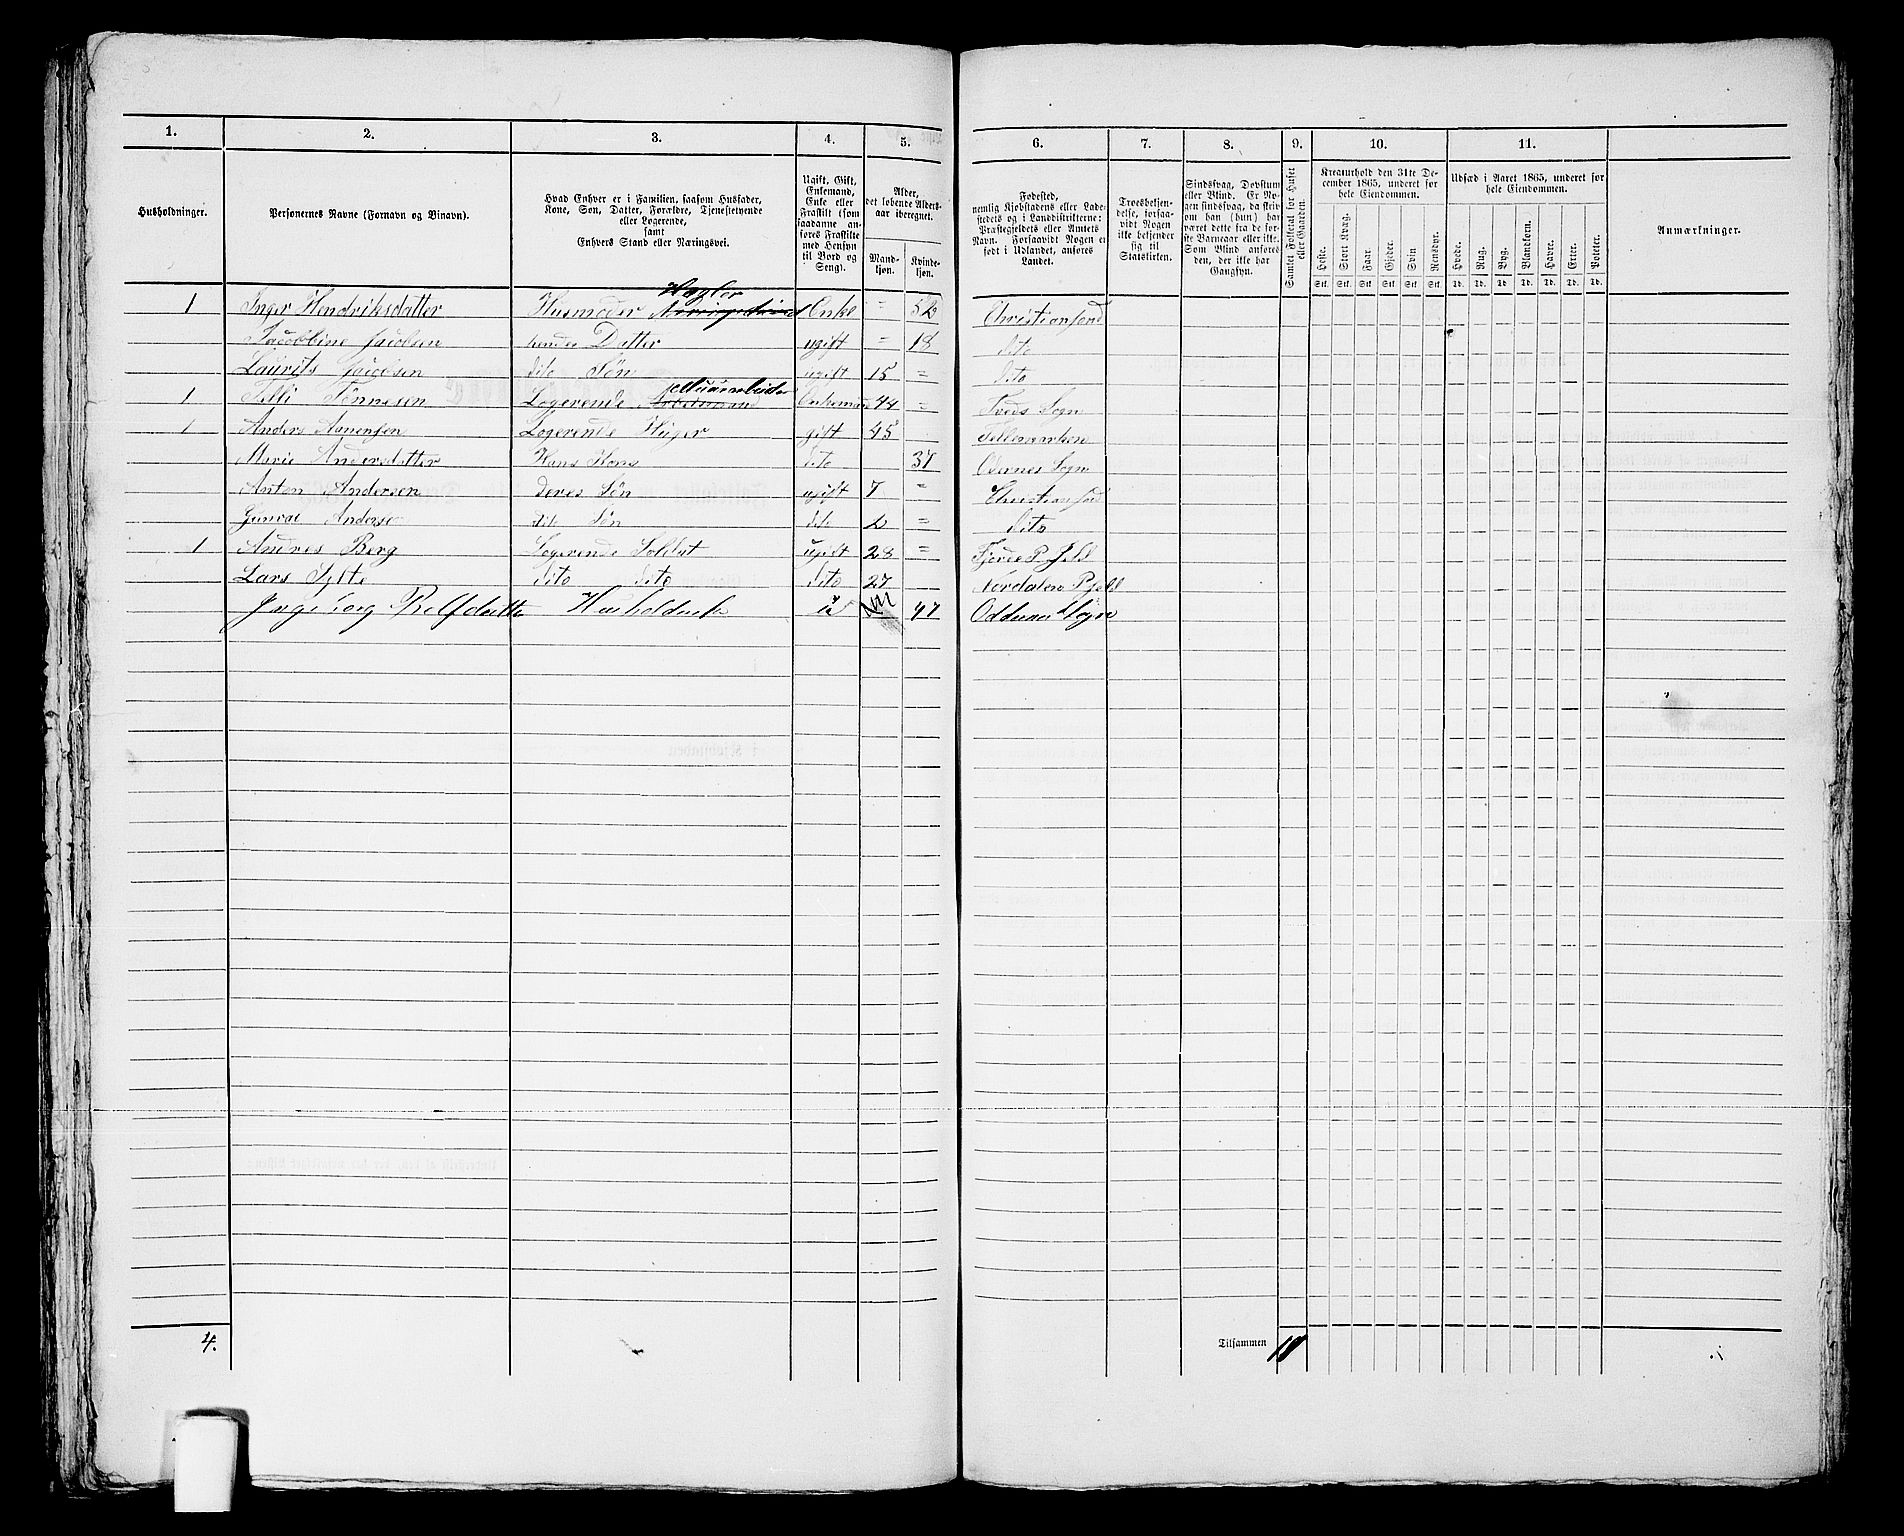 1. 2. 3. 4. 5. 6. 7. 8. 9. 10. 11.
Husholdninger.
Personernes Navne (Fornavn og Binavn).
Hvad Enhver er i Familien, saasom Husfader,
Kone, Søn, Datter, Forældre, Tjenestetyende
eller Logerende,
samt
Enhvers Stand eller Næringsvei.
Ugift, Gift,
Enkemand,
Enke eller
Fraskilt (som
saadanne an-
føres Fraskilte
med Hensyn
til Bord og
Seng).
Alder,
det løbende Alders-
aar iberegnet.
Mand-
kjøn.
Kvinde-
kjøn.
Fødested,
nemlig Kjøbstadens eller Lade-
stedets og i Landdistrikterne:
Præstegjeldets eller Amtets
Navn. Forsaavidt Nogen er
født i Udlandet, anføres
Landet.
Troesbekjen-
delse, forsaa-
vidt Nogen
ikke bekjender
sig til
Statskirken.
Sindssvag, Døvstum
eller Blind. Er No-
gen sindssvag, da skriv
om han (hun) har
været dette fra de før-
ste Barneaar eller ikke.
Som Blind anføres
den, der ikke har
Gangsyn.
Samlet Folketal for Huset
eller Gaarden.
Kreaturhold den 31te De-
cember 1865, underet for
hele Eiendommen.
Heste. Stort Kvæg. Faar. Gjeder. Svin. Rensdyr.
Stk. Stk. Stk. Stk. Stk. Stk.
Udsæd i Aaret 1865, underet for
hele Eiendommen.
Hvede. Rug. Byg. Blandkorn. Havre. Erter. Poteter.
Td. Td. Td. Td. Td. Td. Td.
Anmærkninger.
1 Inger Hendriksdatter Husmoder Høgler Enke = 52 Christiansand
Jacobbine Jacobsen hendes Datter ugift = 18 dito
Laurits Jacobsen dito Søn ugift 15 = dito
1 Telli Tønnesen Logerende Muurarbeider Enkemand 44 = Tveds Sogn
1 Anders Aanensen Logerende Høger gift 45 Tellemarken
Marie Andersdatter Hans Kone dito 37 Odernes Sogn
Anton Andersen deres Søn ugift 7 = Christiansand
Gunval Andersen dito Søn dito 2 = dito
1 Andres Berg Logerende Soldat ugift 28 = Fjorde P. Gjeld
Lars Sylte dito dito dito 27 Nordalen P. Gjeld
Ingeborg Rolfsdatter Husholderske U 47 Oddernes Sogn
4. Tilsammen 11